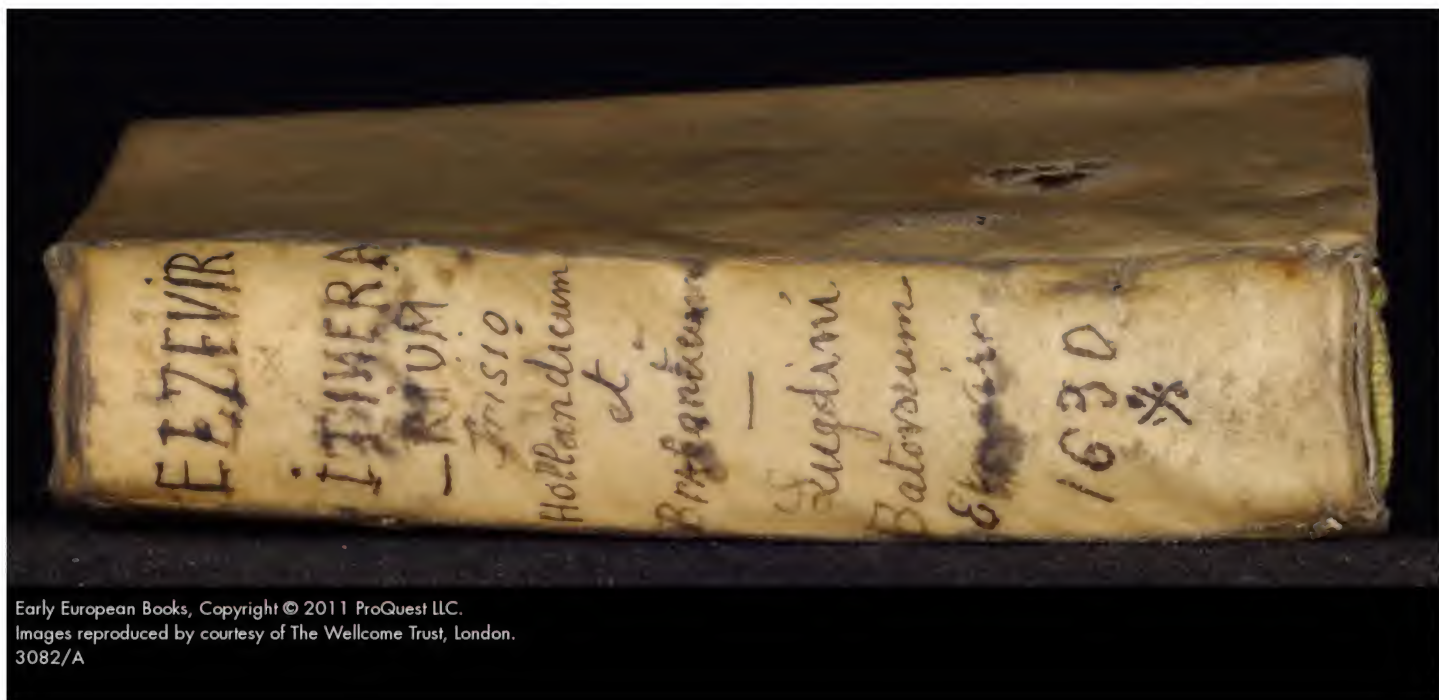 ELZEVIR
ITINERA
-RIUM
Frisio
Hollandicum
et
Brabanticum
—
Lugduni
Batovorum
1630
Early European Books, Copyright © 2011 ProQuest LLC.
Images reproduced by courtesy of The Wellcome Trust, London.
3082/A